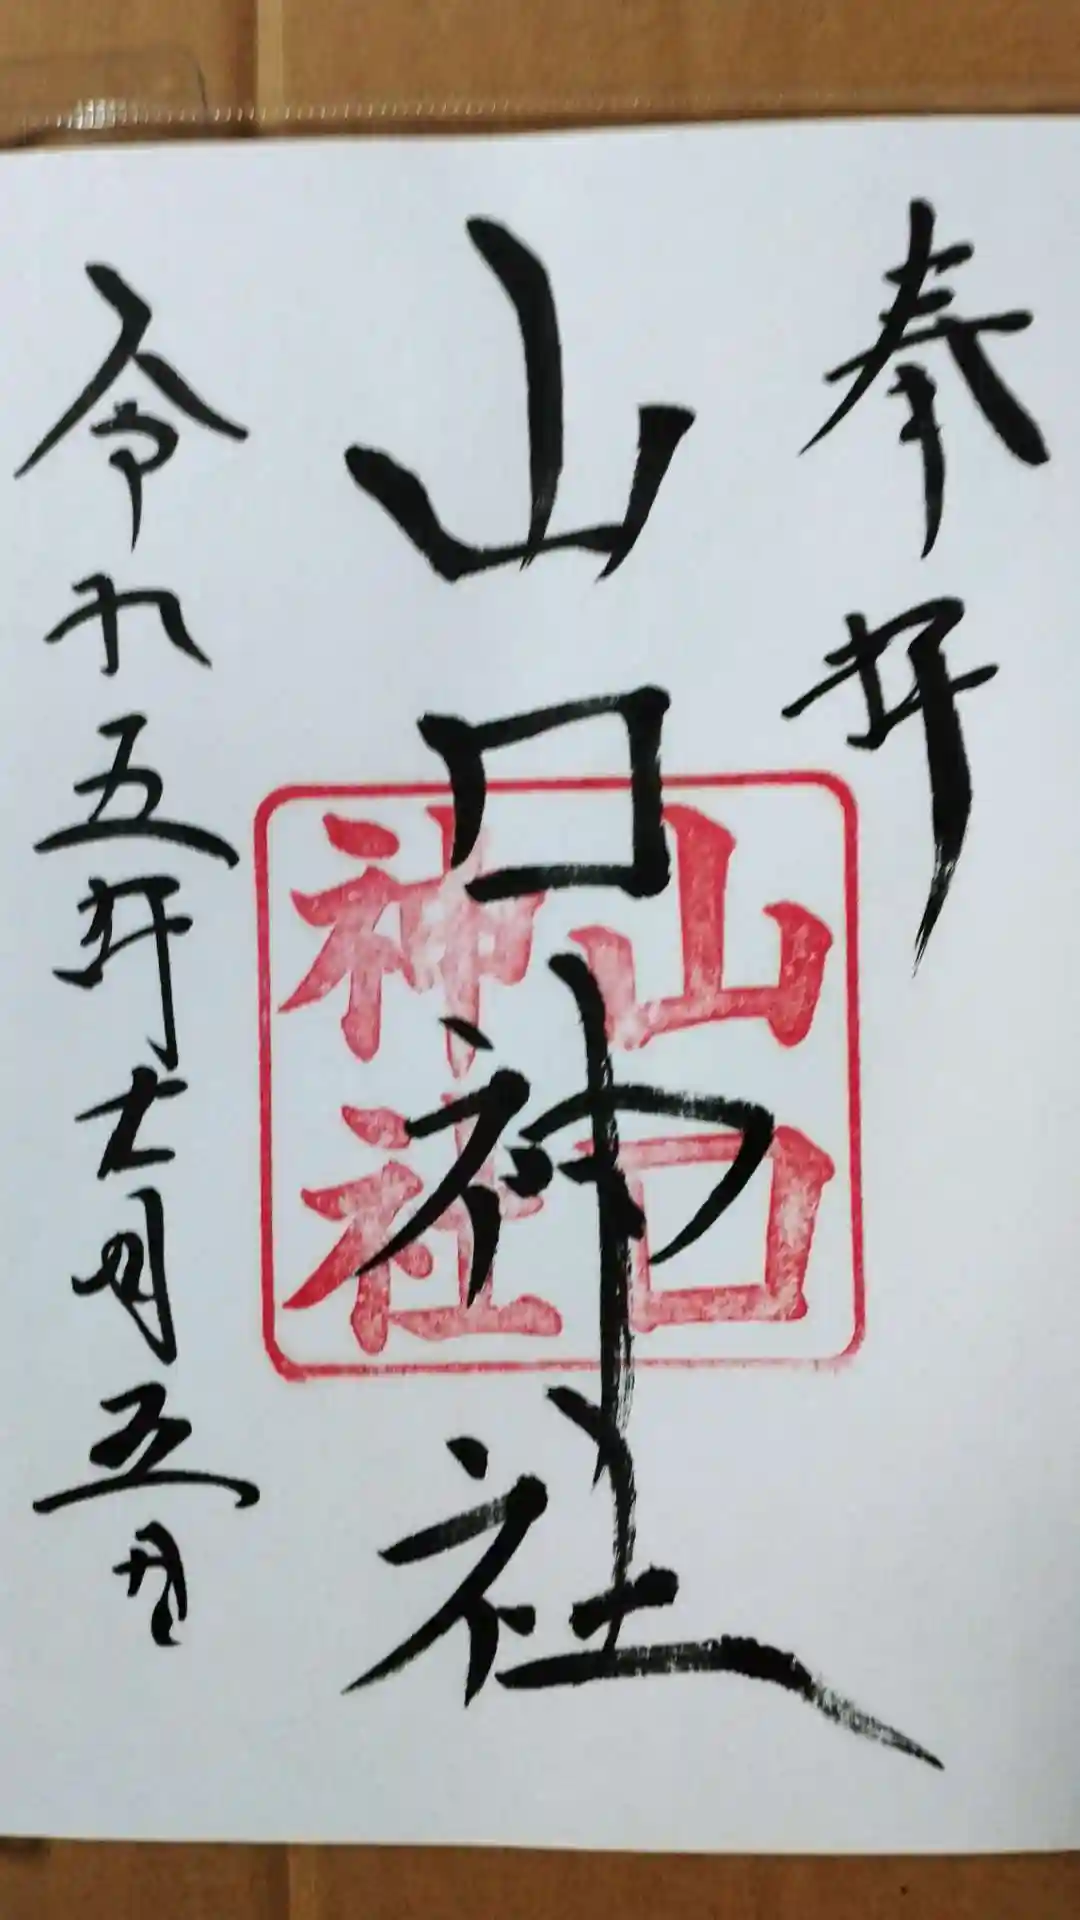 奉拝
山口神社
山口
神社
令和五年七月五日